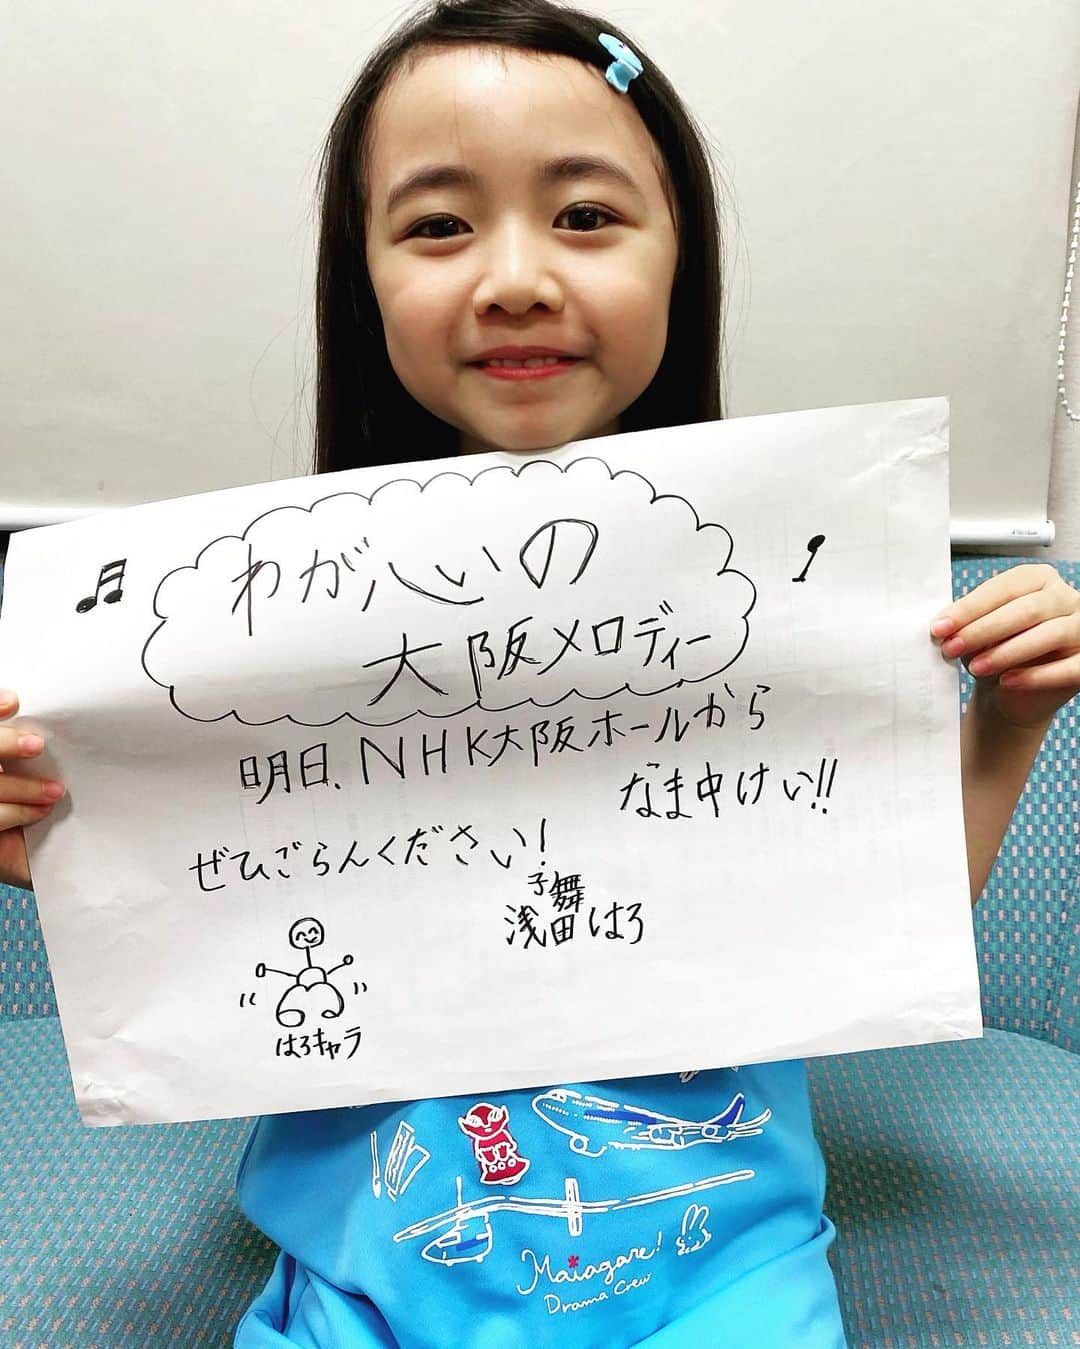 わが心の
大阪メロディー
明日、NHK大阪ホールから
なま中けい!!
ぜひごらんください!
子舞
浅田はろ
はろキャラ
Maiagare!
Drama Crew